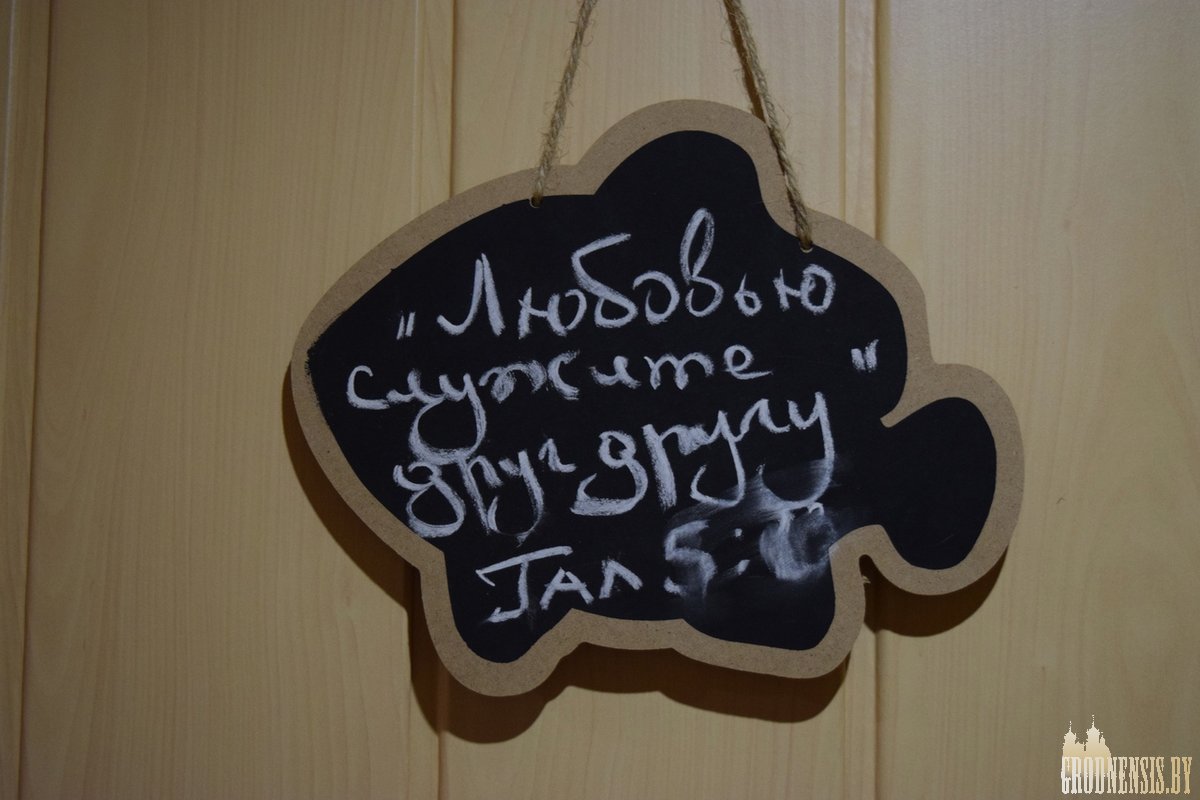 "Любовью
служите "
друг другу
Гал 5:
GRODNENSIS.BY